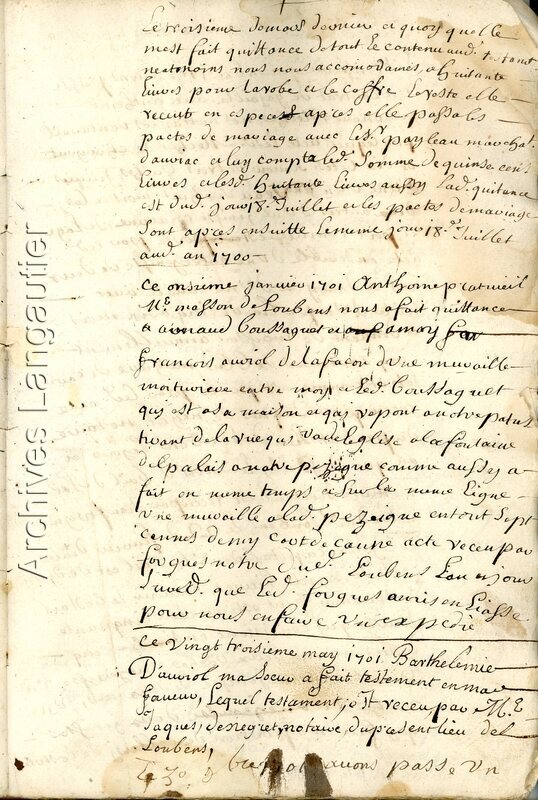 Le troisieme de mars dernier et quoy quelle
mest fait quittance de tout le contenu aud. testamt
neanmoins nous nous accomodames, a huitante
Livres pour la robe et le coffre le reste elle
receut en especes apres elle passa les
pactes de mariage avec le Sr payleau marchat.
dauriac et luy compta led. somme de quinse cens
Livres et lesd. huitante Livres aussy lad. quitance
est dud. jour 18e Juillet et les pactes de mariage
sont apres en suitte le meme jour 18e Juillet
aud. an 1700
Ce onsieme janvier 1701 Anthoine pratvieil
Me. masson de Loubens nous a fait quittance
a arnaud Coussaquet et a moy
francois auriol de la facon d'une muraille
moituriere entre moy et led. Coussaquet
qui est a sa maison et qui repont a notre patus
tirant de la rue qui va de Leglise a la fontaine
del palais a notre pezeigne comme aussy a
fait en meme temps et sur la meme Ligne
une muraille a lad. pezeigne en tout sept
cennes demy cart de canne acte receu par
forgues notre dud. Loubens Lan et jour
susd. que led. forgues a mis en Liasse
pour nous en faire un expedie
Ce vingt troisieme may 1701 Barthelemie
D'auriol ma soeur a fait testement en ma
faveur, Lequel testament, est receu par Me.
Jaques, denegret, notaire du present lieu del
Loubens,
Le 30e 1701 avons passe un
Archives Langautier